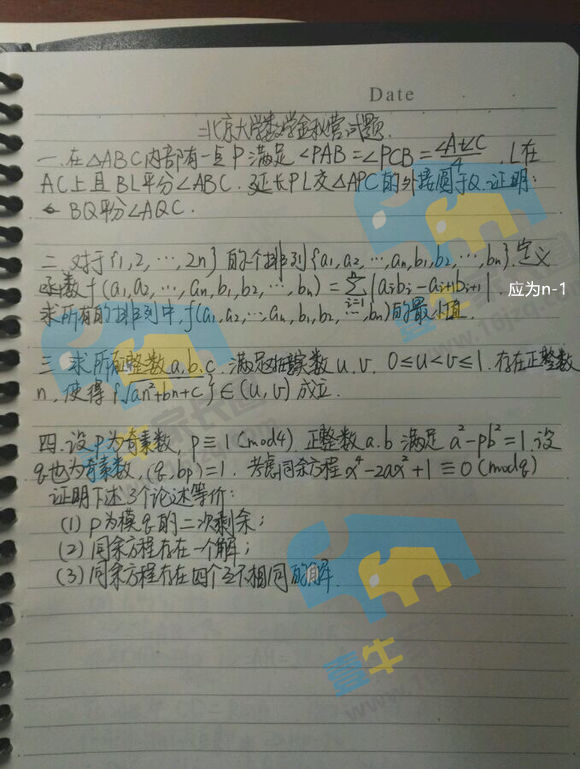 Date
北京大学数学金秋营试题.
一.在△ABC内部有一点P满足∠PAB=∠PCB=(∠A+∠C)/4. L在
AC上且BL平分∠ABC. 延长PL交△APC的外接圆于Q.证明:
BQ平分∠AQC.
二.对于{1,2,…,2n}的个排列{a₁,a₂,…,aₙ,b₁,b₂,…,bₙ},定义
函数f(a₁,a₂,…,aₙ,b₁,b₂,…,bₙ)=∑ᵢ₌₁ⁿ|aᵢbᵢ-aᵢ₊₁bᵢ₊₁|. 应为n-1
求所有的排列中,f(a₁,a₂,…aₙ,b₁,b₂,…,bₙ)的最小值.
三 求所有正整数a,b,c,满足对实数u,v, 0≤u<v≤1.存在正整数
n,使得{√an²+bn+c}∈(u,v)成立.
四.设p为奇素数,p≡1(mod4),正整数a.b满足a²-pb²=1.设
q也为奇素数,(q,bp)=1. 考虑同余方程x⁴-2ax²+1≡0(modq)
证明下述3个论述等价:
(1) p为模q的二次剩余;
(2) 同余方程存在一个解;
(3) 同余方程存在四个互不相同的解.
壹牛